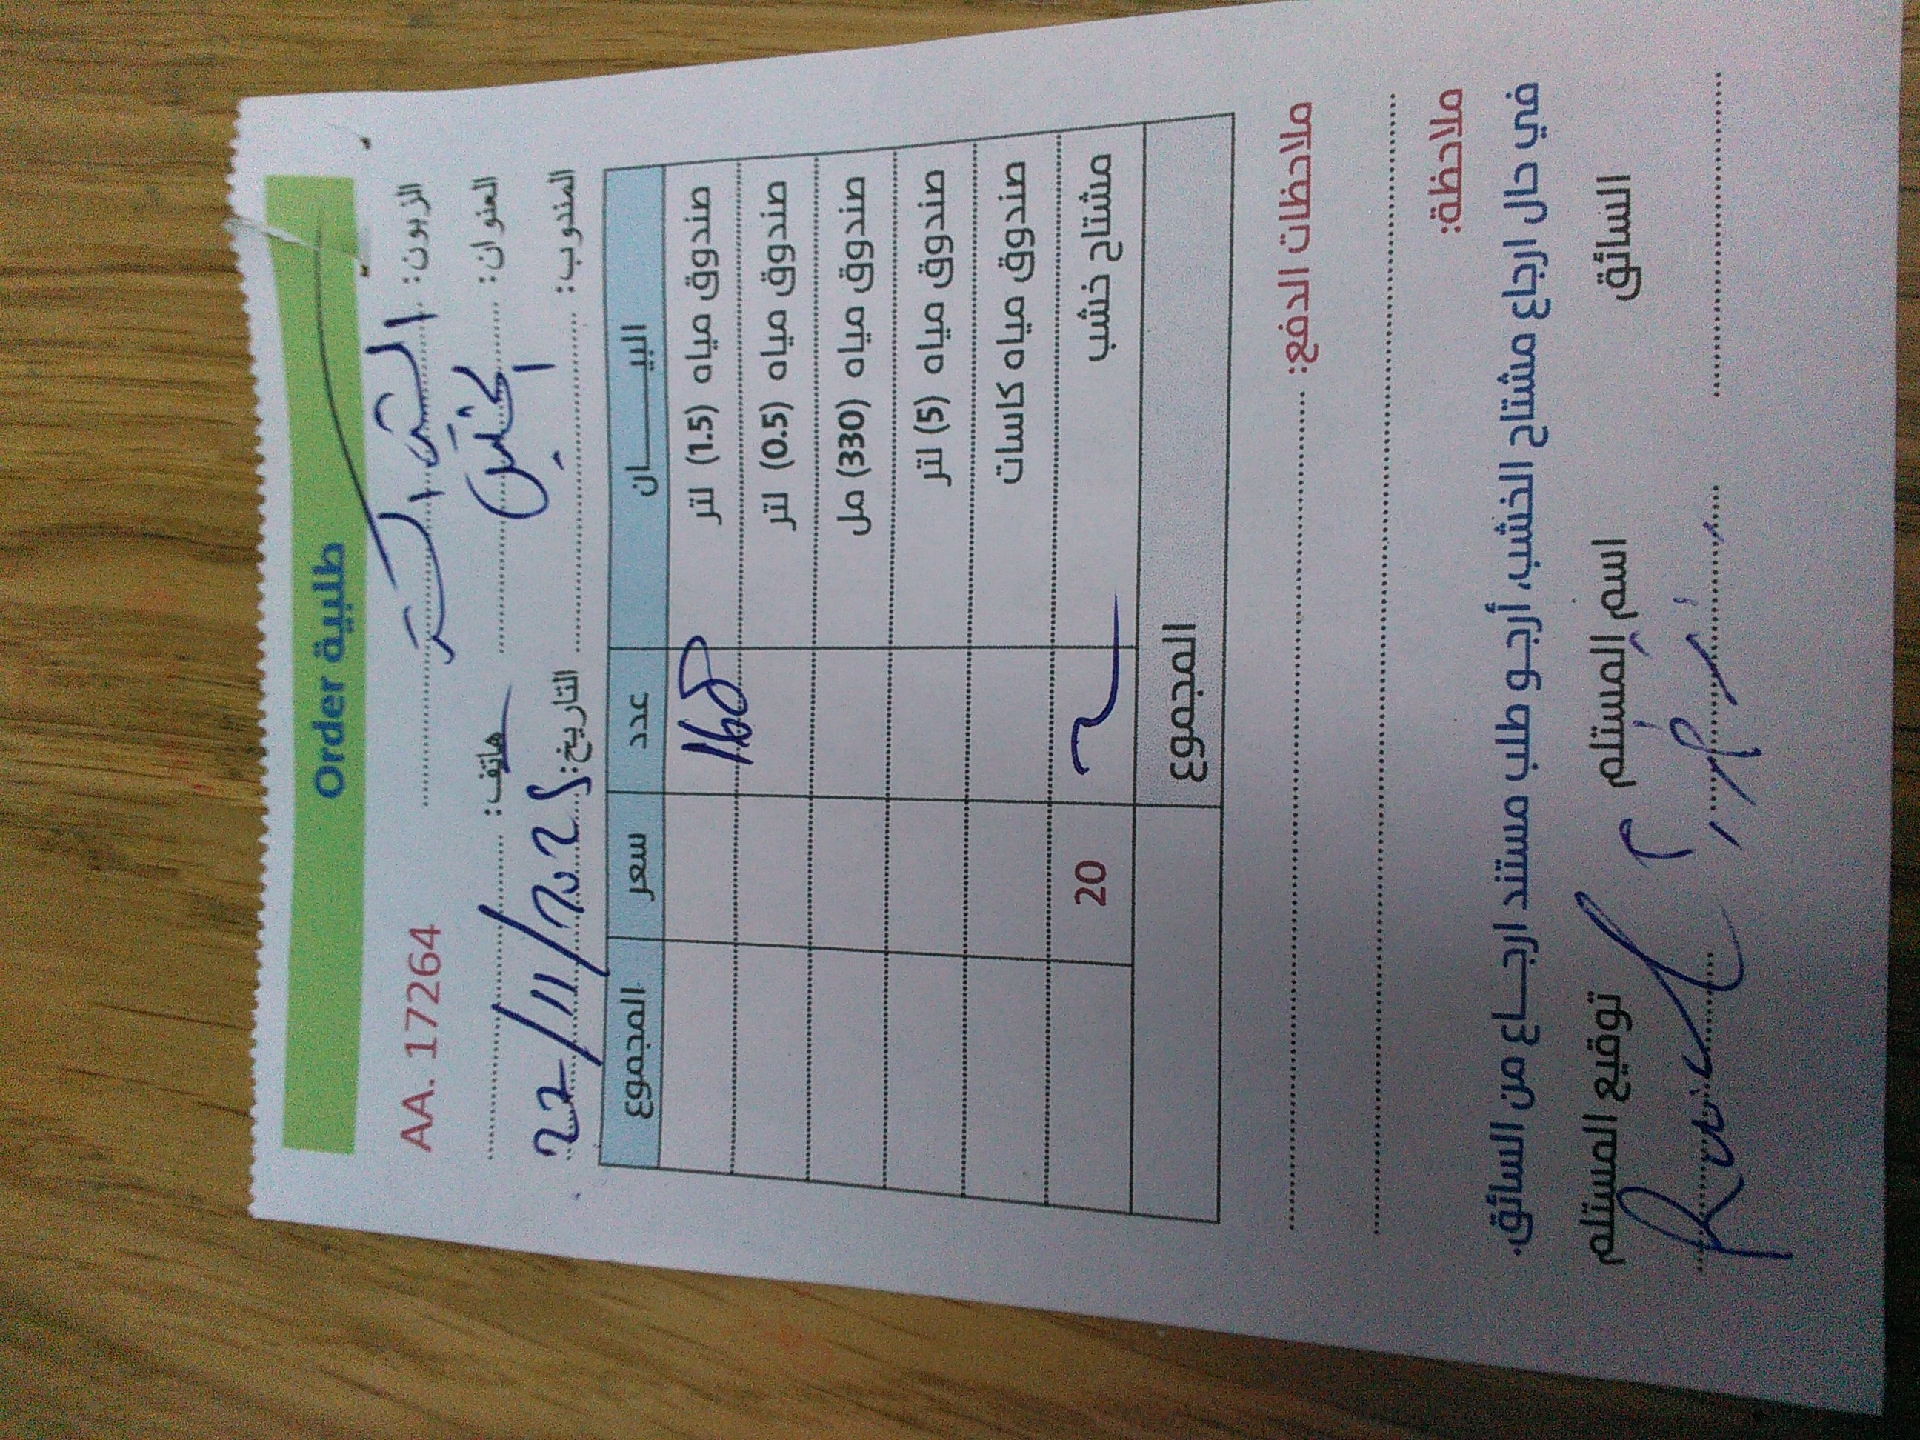 Order طلبية
AA. 17264
الزبون:
العنوان: هاتف:
المندوب: التاريخ: 22/11/2025
البيـــــــان عدد سعر المجموع
صندوق مياه (1.5) لتر 168
صندوق مياه (0.5) لتر
صندوق مياه (330) مل
صندوق مياه (5) لتر
صندوق مياه كاسات
مشتاح خشب 20
المجموع
ملاحظات الدفع:
ملاحظة:
في حال ارجاع مشتاح الخشب، أرجو طلب مستند ارجـــاع من السائق.
السائق اسم المستلم توقيع المستلم